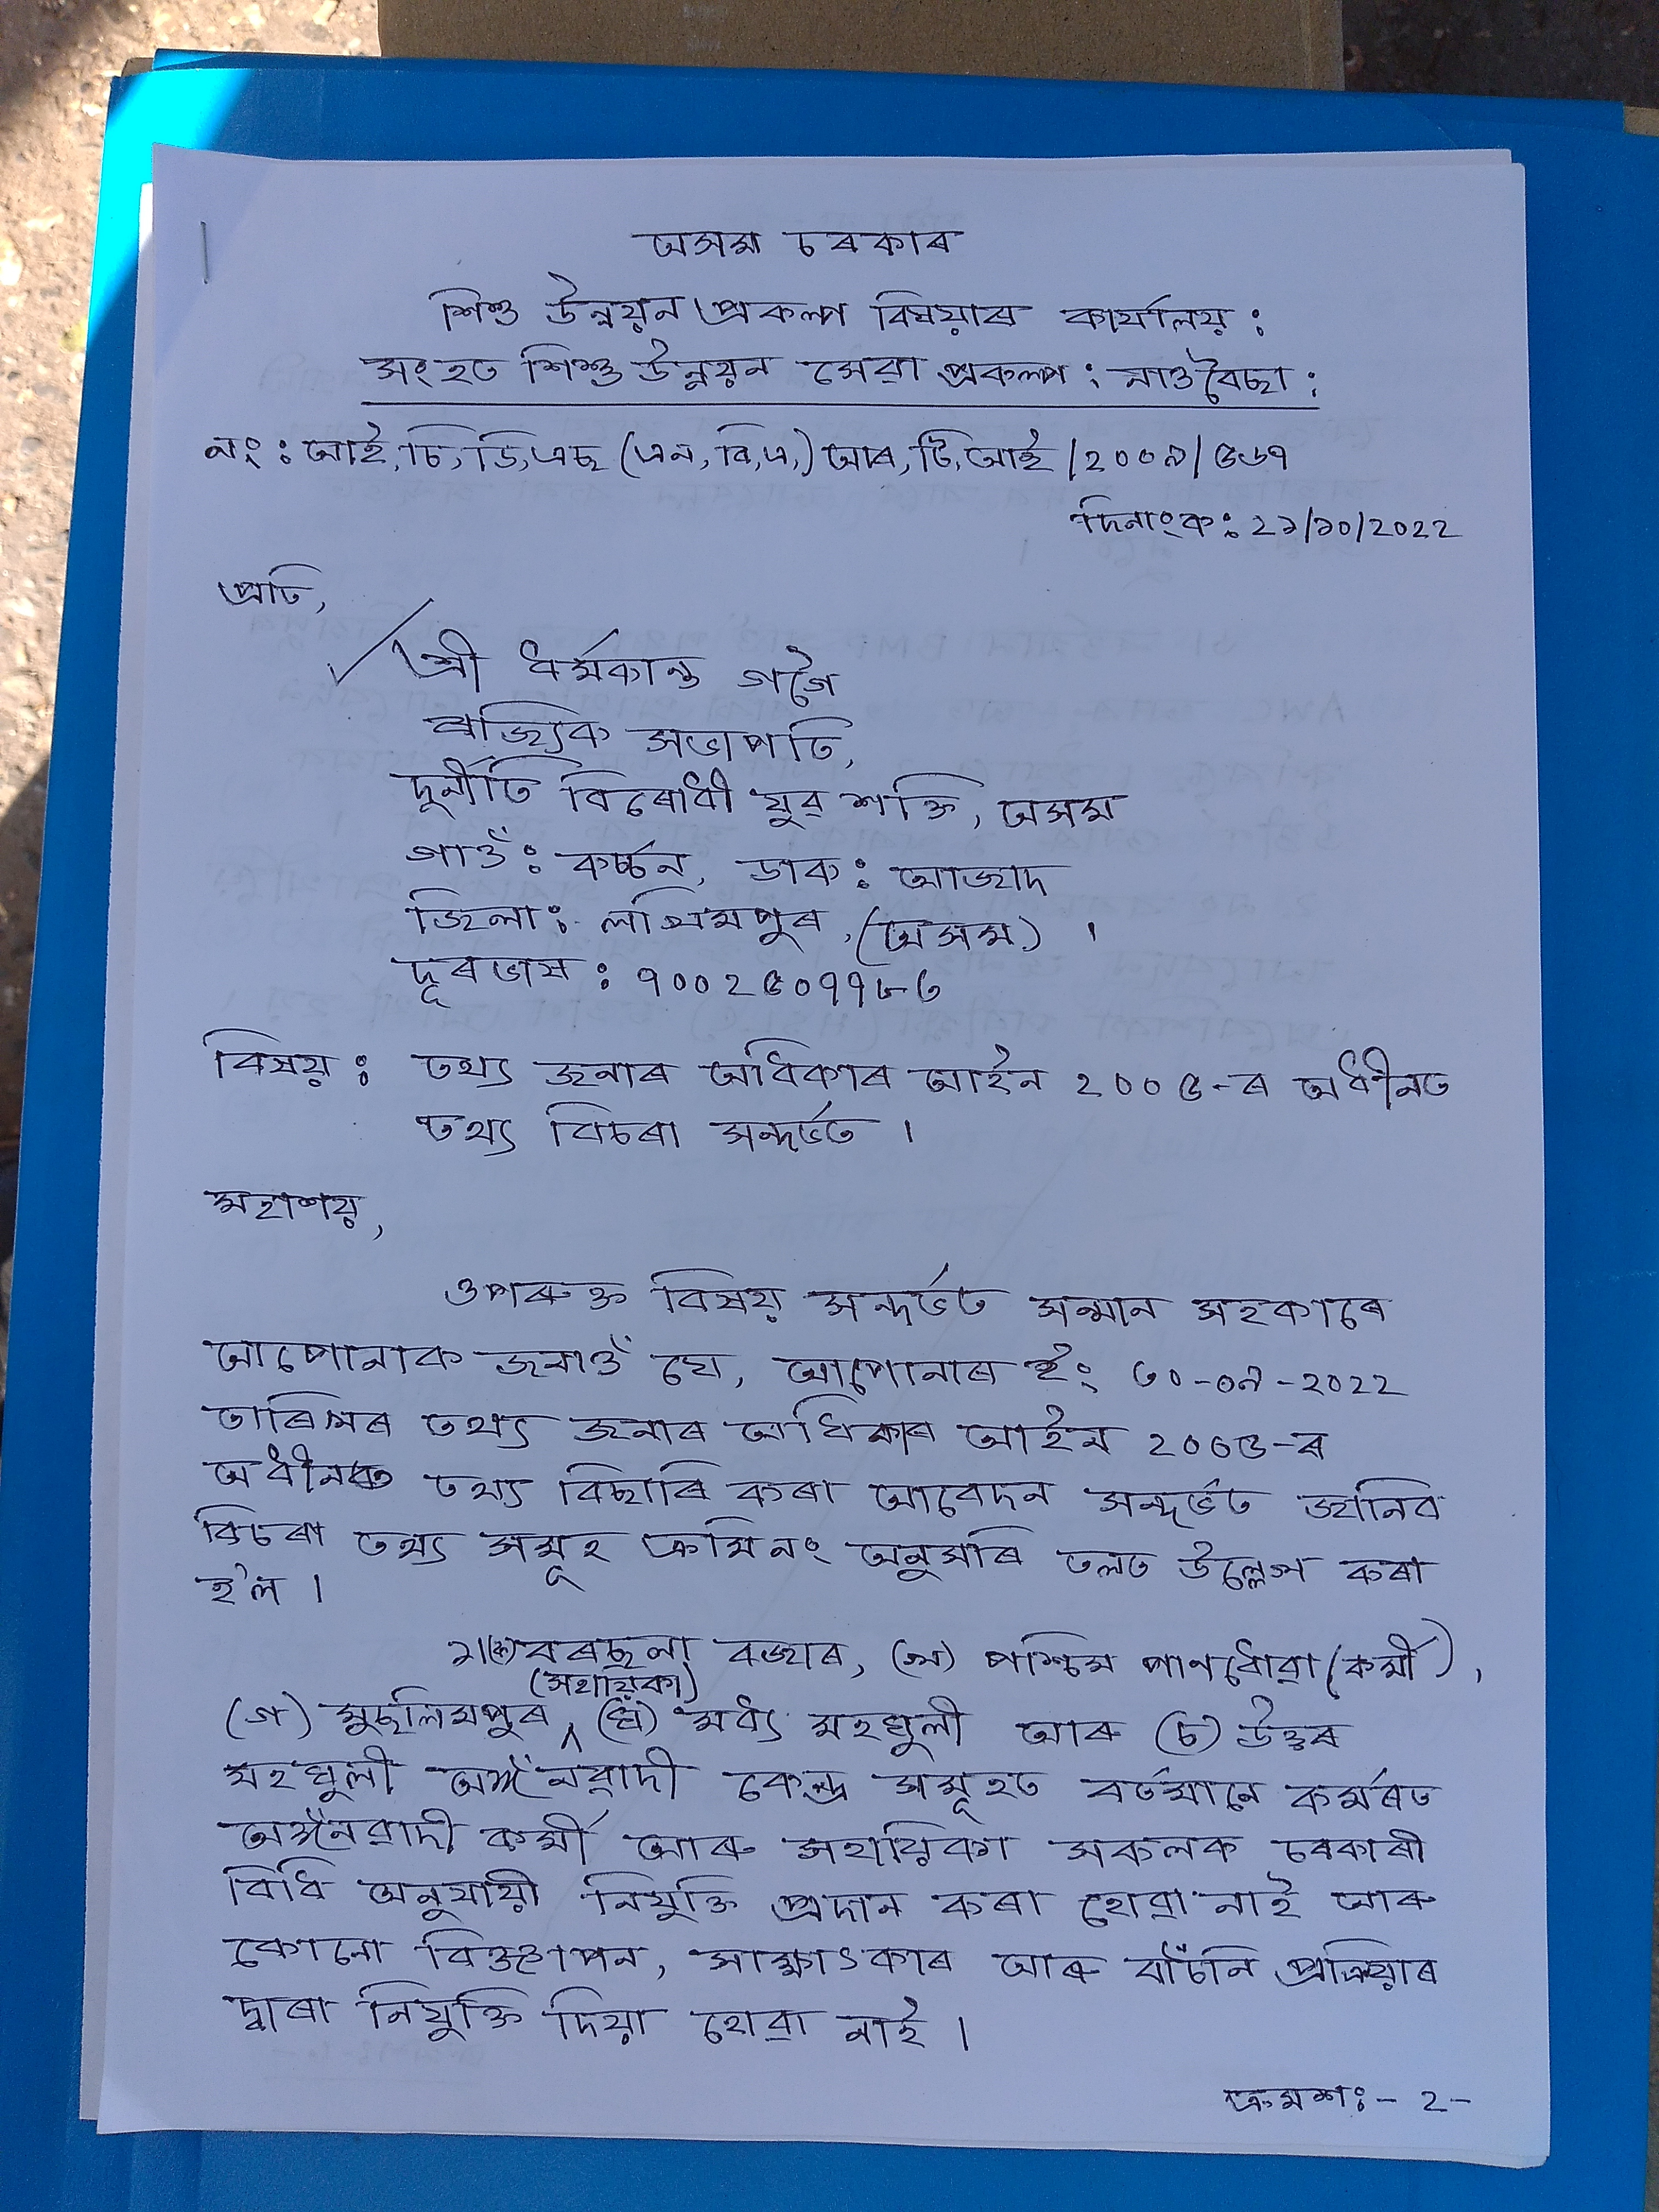 অসম চৰকাৰ
শিশু উন্নয়ন প্ৰকল্প বিষয়াৰ কাৰ্যালয় :
সংহত শিশু উন্নয়ন সেৱা প্ৰকল্প : নাওবৈছা :
নং : আই, চি, ডি, এছ (এন, বি, এ,) আৰ, টি, আই /২০০৯/৫৬৭
দিনাংক : ২১/১০/২০২২
প্ৰতি,
শ্ৰী ধৰ্মকান্ত গগৈ
ৰাজ্যিক সভাপতি,
দুৰ্নীতি বিৰোধী যুৱ শক্তি, অসম
গাওঁ : কৰ্চ্চন, ডাক : আজাদ
জিলা : লখিমপুৰ, (অসম) ।
দূৰভাষ : ৭০০২৫০৭৭৮৩
বিষয় : তথ্য জনাৰ অধিকাৰ আইন ২০০৫-ৰ অধীনত
তথ্য বিচৰা সন্দৰ্ভত ।
মহাশয়,
ওপৰুক্ত বিষয় সন্দৰ্ভত সন্মান সহকাৰে
আপোনাক জনাওঁ যে, আপোনাৰ ইং ৩০-০৯-২০২২
তাৰিখৰ তথ্য জনাৰ অধিকাৰ আইন ২০০৫-ৰ
অধীনত তথ্য বিছাৰি কৰা আবেদন সন্দৰ্ভত জানিব
বিচৰা তথ্য সমূহ ক্ৰমিনং অনুসৰি তলত উল্লেখ কৰা
হ'ল ।
১।(ক) বৰছলা বজাৰ, (খ) পশ্চিম পানধোৱা (কৰ্মী),
(সহায়িকা)
(গ) মুছলিমপুৰ, (ঘ) মধ্য মহঘুলী আৰু (চ) উত্তৰ
মহঘুলী অঙ্গনৱাদী কেন্দ্ৰ সমূহত বৰ্তমানে কৰ্মৰত
অঙ্গনৱাদী কৰ্মী আৰু সহায়িকা সকলক চৰকাৰী
বিধি অনুযায়ী নিযুক্তি প্ৰদান কৰা হোৱা নাই আৰু
কোনো বিজ্ঞাপন, সাক্ষাৎকাৰ আৰু বাচঁনি প্ৰক্ৰিয়াৰ
দ্বাৰা নিযুক্তি দিয়া হোৱা নাই ।
ক্ৰমশ : - ২ -